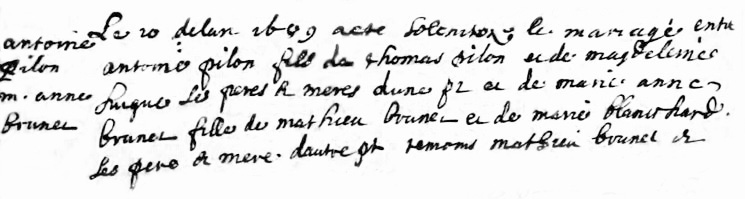 antoine
pilon
m. anne
brunet
Le 20 de lan 1689 acte Solemnize le mariage entre
antoine pilon fils de thomas pilon et de magdelene
huque Ses peres & meres dune pt et de marie anne
brunet fille de mathieu brunet et de marie blanchard.
Ses pere & mere. dautre pt temoins mathieu brunet &